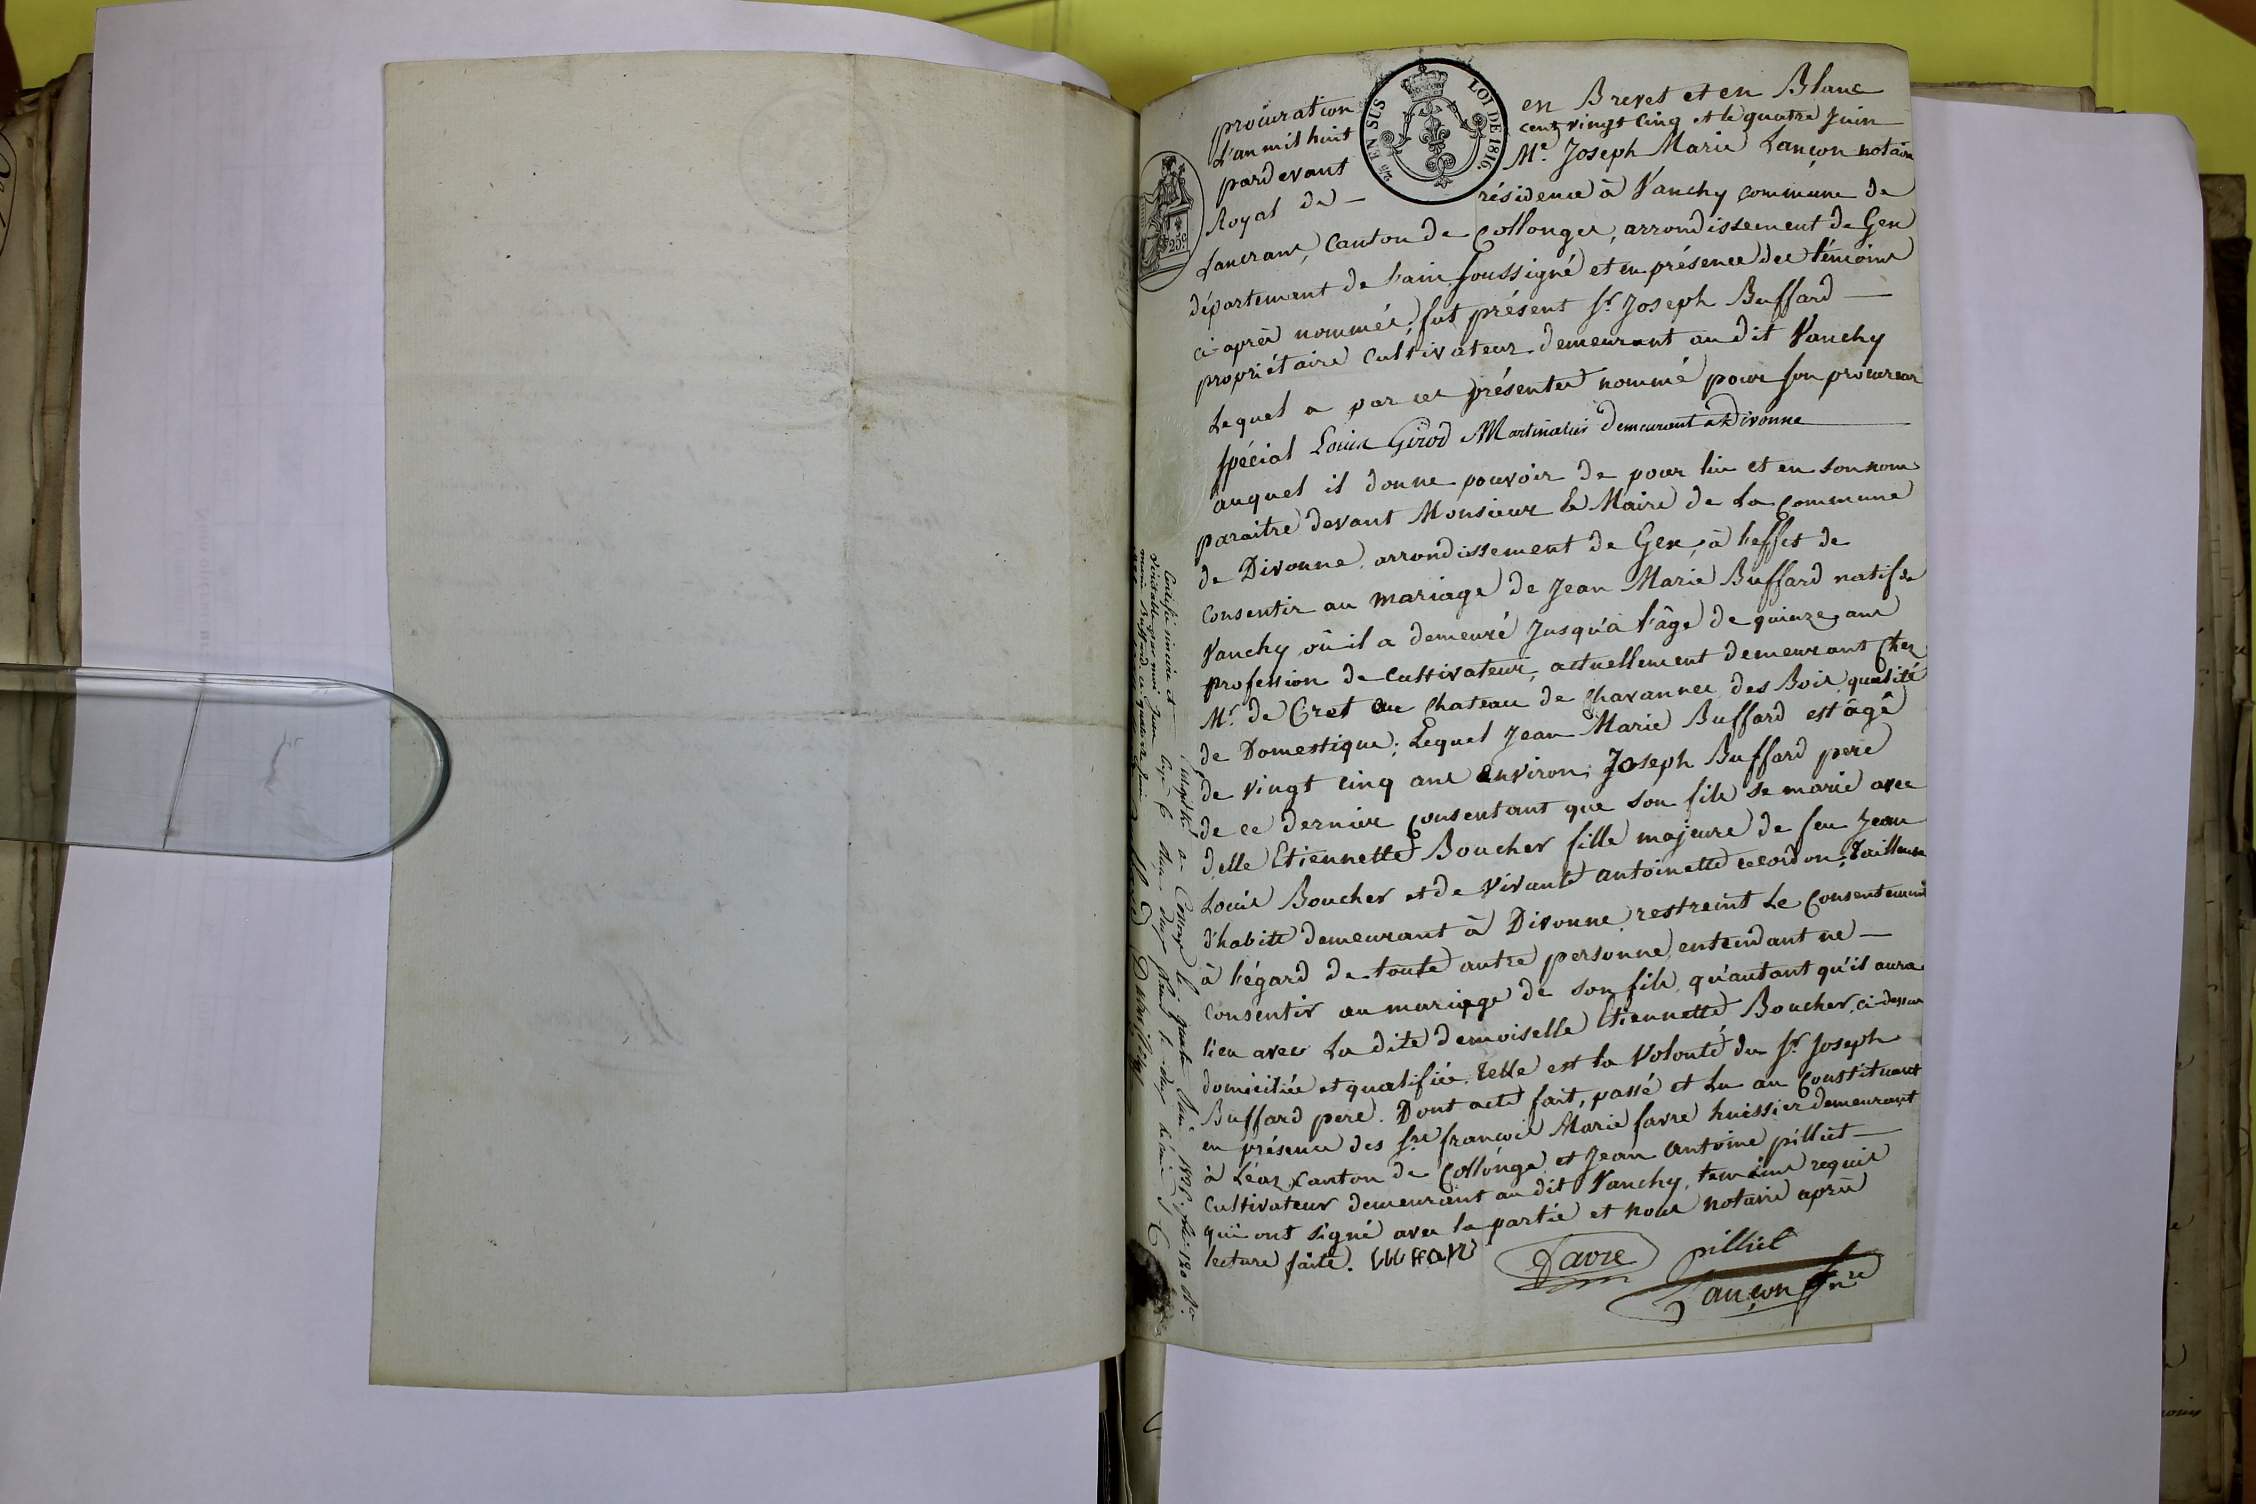 procuration en Brevet et en Blanc
L'an mil huit cent vingt cinq et le quatre Juin
pardevant Me. Joseph Marie Lançon notaire
Royal de — résidence à Vanchy commune de
Lancrans, Canton de Collonges, arrondissement de Gex
département de l'ain soussigné et en présence des témoins
ci-après nommés, fut présent Sr. Joseph Buffard —
propriétaire cultivateur demeurant au dit Vanchy
Lequel a par ces présentes nommé pour son procureur
spécial Louis Girod Demeurant à Divonne
auquel il donne pouvoir de pour lui et en son nom
paraitre devant Monsieur le Maire de la Commune
de Divonne, arrondissement de Gex, à l'effet de
Consentir au mariage de Jean Marie Buffard natif de
Vanchy où il a demeuré Jusqu'à l'âge de quinze ans
profession de Cultivateur, actuellement demeurant Chez
Mr. de Cret au Chateau de Chavannes des Bois qualité
de Domestique; Lequel Jean Marie Buffard est âgé
de vingt cinq ans environ; Joseph Buffard pere
de ce dernier Consentant que son fils se marie avec
delle Etiennette Boucher fille majeure de feu Jean
Louis Boucher et de vivante antoinette recordon, Tailleuse
d'habits demeurant à Divonne, restreint Le Consentement
à l'égard de toute autre personne, entendant ne —
Consentir au mariage de son fils, qu'autant qu'il aura
lieu avec La dite demoiselle Etiennette Boucher, ci-dessus
domiciliée et qualifiée. Telle est la Volonté du Sr. Joseph
Buffard pere. Dont acte fait, passé et Lu au Constituant
en présence des Srs. françois Marie favre huissier demeurant
à Léaz, Canton de Collonge et Jean Antoine pilliet —
Cultivateur demeurant au dit Vanchy, temoins requis
qui ont signé avec la partie et nous notaire après
lecture faite.
Favre
pilliet
Lançon nre
Certifié sincère et
véritable par moi Jean
marie Buffard, ce quatorze Juin
à le quatre Juin 1825
EN SUS
LOI DE 1816.
25c